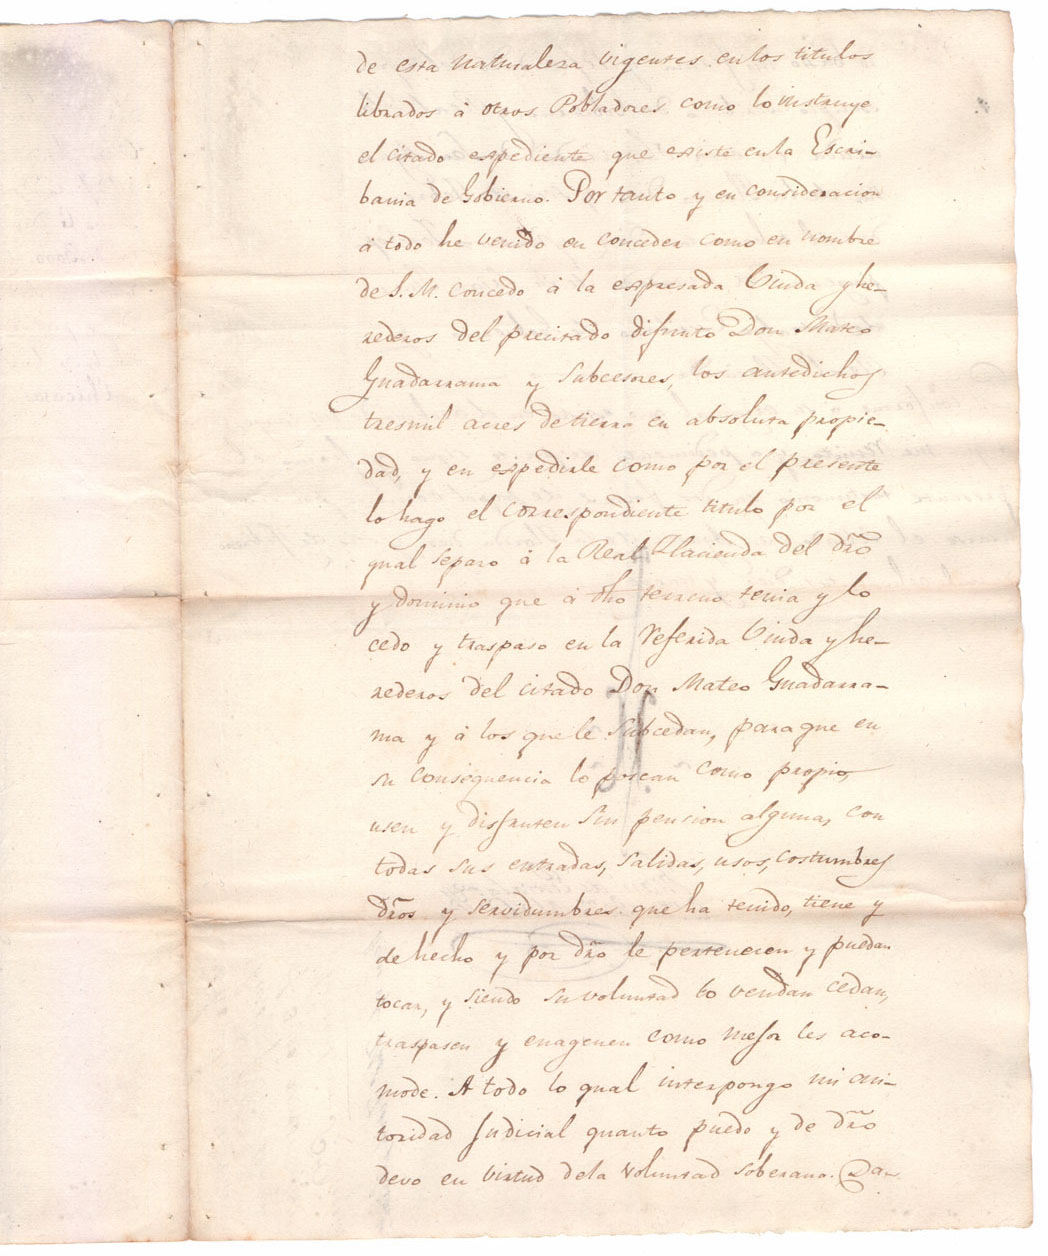 de esta naturaleza vigentes en los titulos
librados á otros Pobladores como lo instruye
el citado espediente que existe en la Escri-
bania de Gobierno. Por tanto y en consideracion
á todo he venido en conceder como en nombre
de S. M. concedo á la espresada Viuda y he-
rederos del precitado difunto Don Mateo
Guadarrama y Subcesores, los antedichos
tresmil acres de tierra en absoluta propie-
dad, y en espedirle como por el presente
lo hago el correspondiente titulo por el
qual separo á la Real Hacienda del dro
y dominio que á dho terreno tenia y lo
cedo y traspaso en la referida Viuda y he-
rederos del citado Don Mateo Guadarra-
ma y á los que le Subcedan, para que en
su consequencia lo posean como propio,
usen y disfruten sin pension alguna, con
todas sus entradas, salidas, usos, costumbres
dros y servidumbres que ha tenido, tiene y
de hecho y por dro le pertenecen y puedan
tocar, y siendo su voluntad lo vendan cedan,
traspasen y enagenen como mejor les aco-
mode. A todo lo qual interpongo mi au-
toridad Judicial quanto puedo y de dro
devo en virtud de la voluntad soberana. Da-